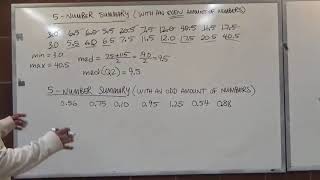 5-NUMBER SUMMARY (WITH AN EVEN AMOUNT OF NUMBERS)
3.0 6.5 5.5 20.5 7.5 12.0 40.5 17.5
3.0 5.5 6.0 6.5 7.5 11.5 12.0 17.5 20.5 40.5
min = 3.0 med = 7.5+11.5/2 = 19.0/2 = 9.5
max = 40.5
med (Q2) = 9.5
5-NUMBER SUMMARY (WITH AN ODD AMOUNT OF NUMBERS)
0.56 0.75 0.10 0.95 1.25 0.54 0.88